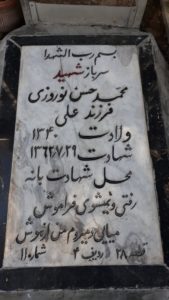 بسم رب الشهدا
سرباز شهید
محمد حسن نوروزی
فرزند علی
ولادت ۱۳۴۰
شهادت ۱۳۶۲٫۷٫۲۹
محل شهادت بانه
رفتی و نمیشوی فراموش
میایی و میروم من از هوش
قطعه ۲۸ ردیف ۴ شماره ۱۱